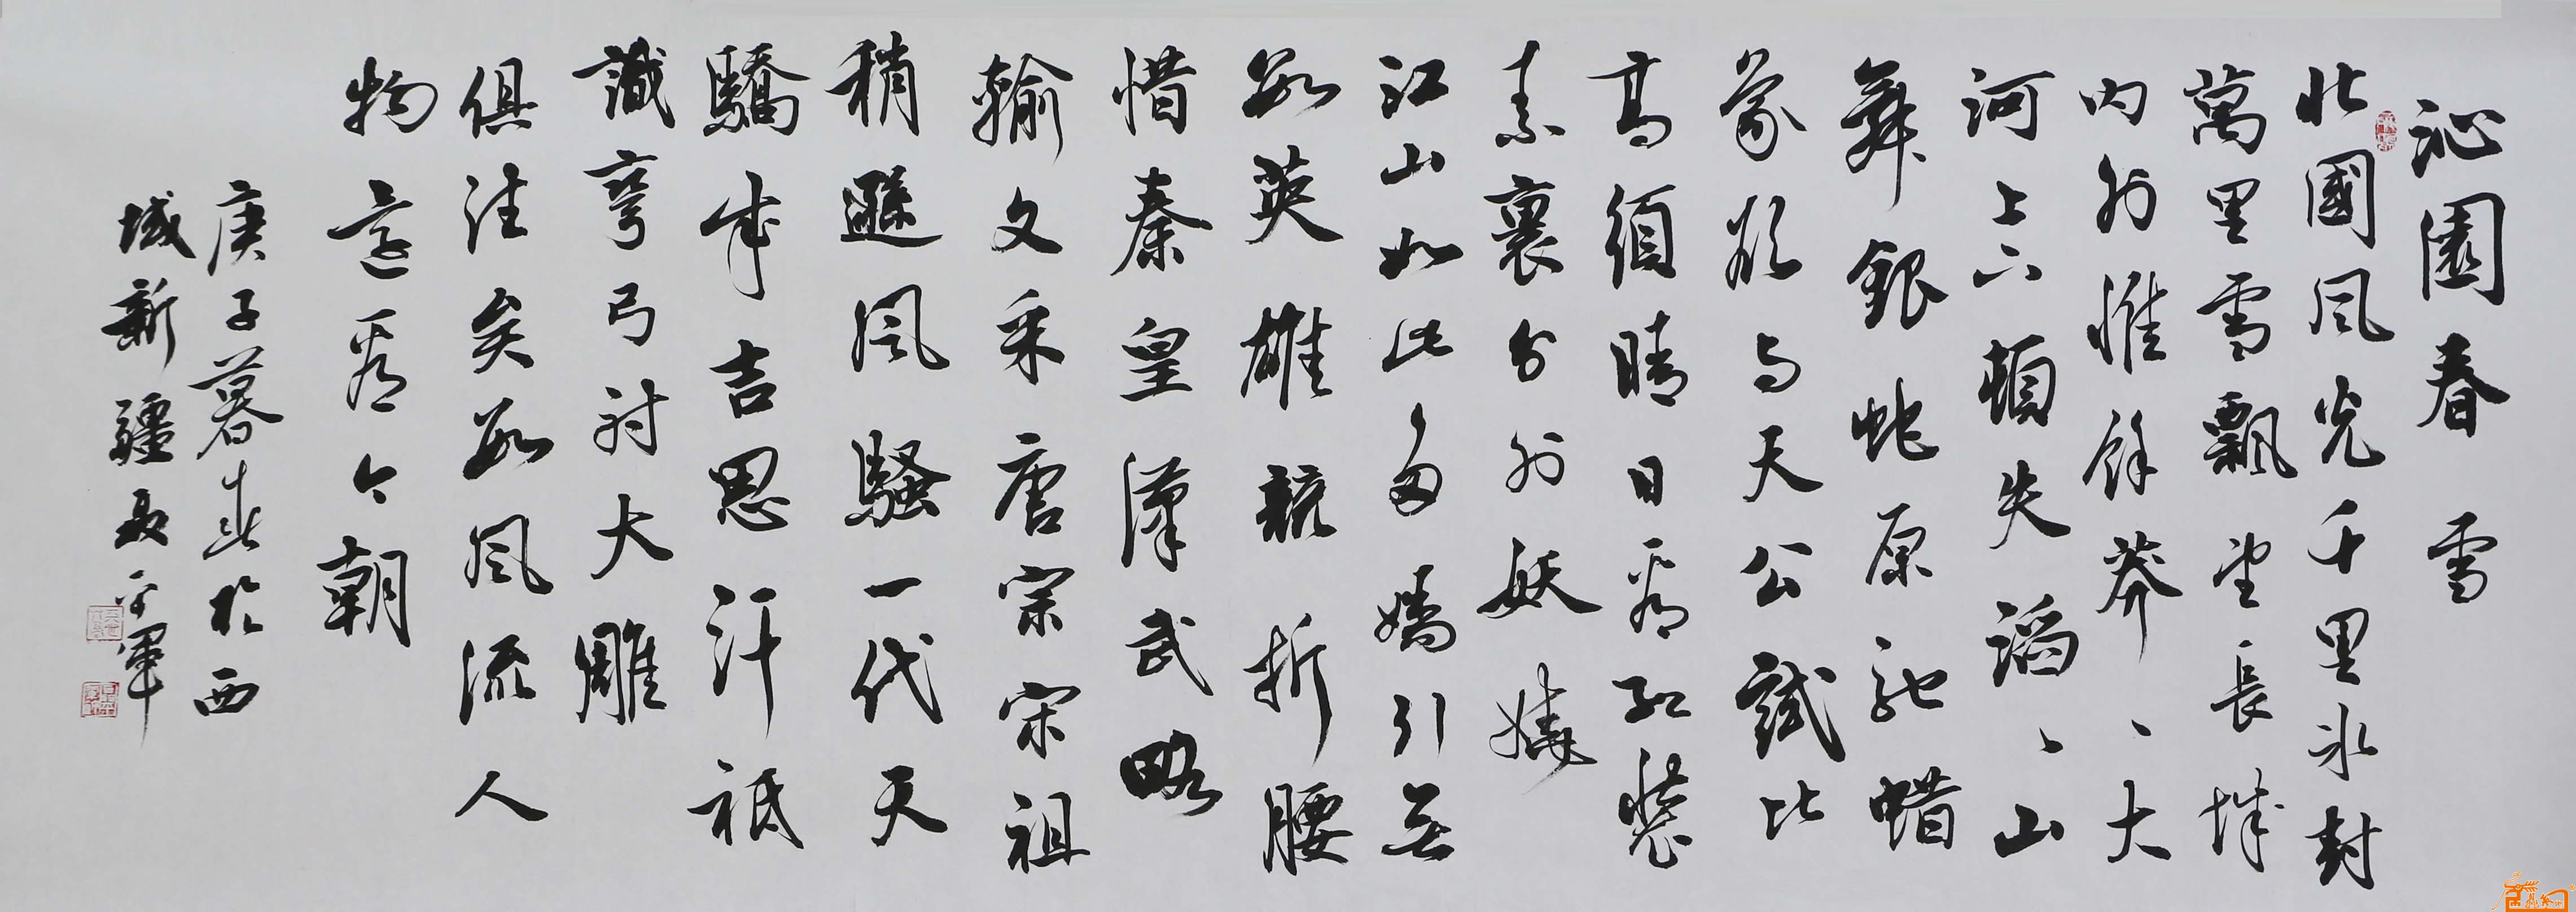 沁園春 雪
北國風光千里冰封
萬里雪飄望長城
内外惟餘莽、、大
河上下頓失滔、、山
舞銀蛇原馳蜡
象欲与天公試比
高須晴日看紅裝
素裹分外妖嬈
江山如此多嬌引無
數英雄競折腰
惜秦皇漢武略
輸文采唐宗宋祖
稍遜風騷一代天
驕成吉思汗祗
識彎弓射大雕
俱往矣數風流人
物還看今朝
庚子暮春於西
域新疆軍